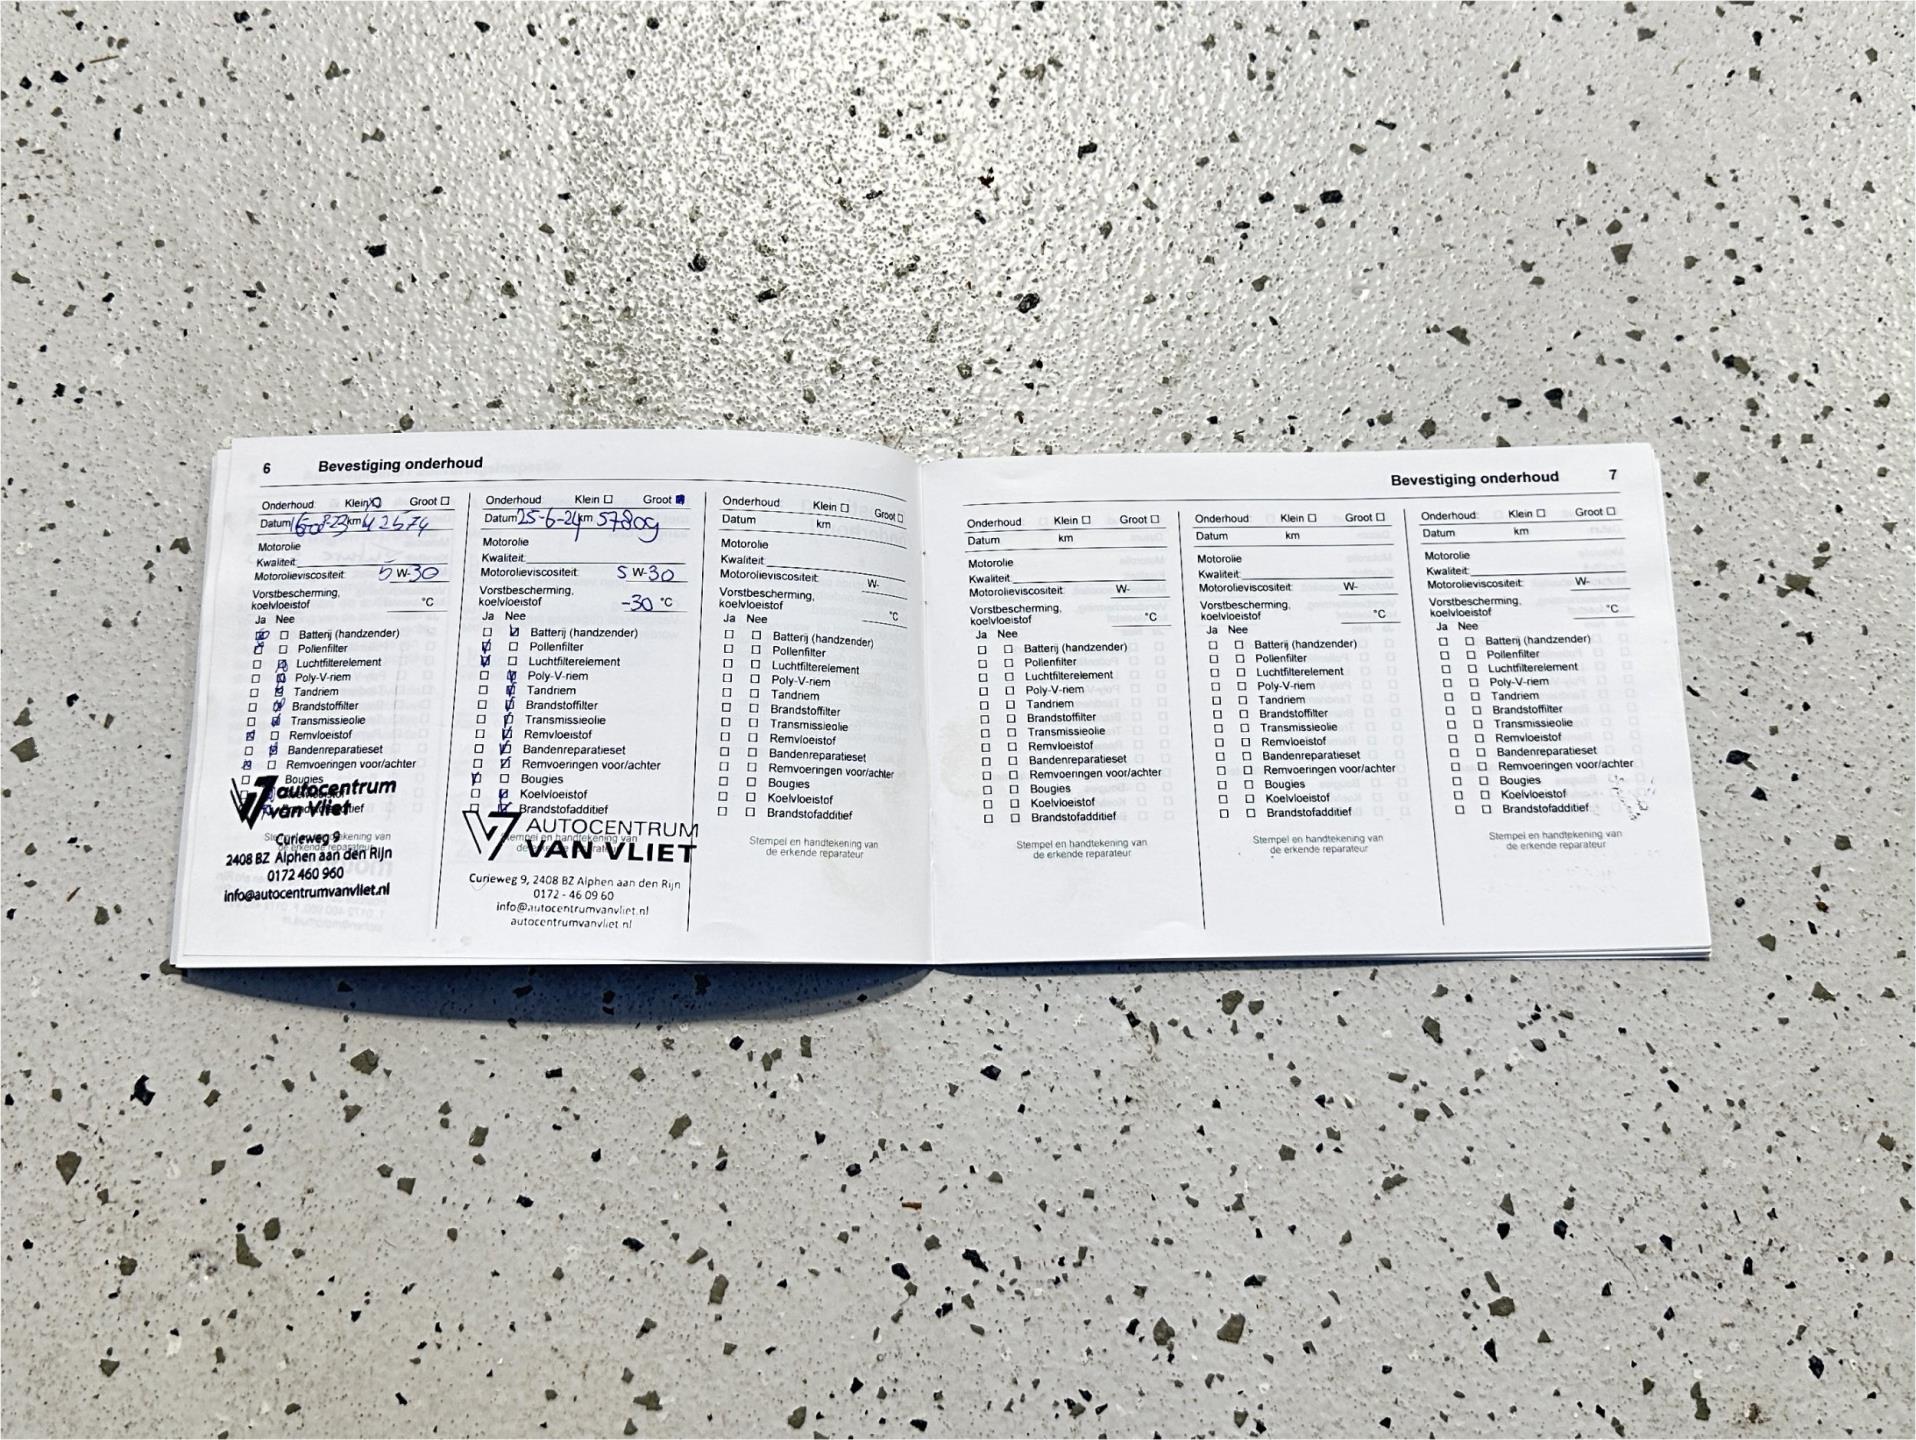 6 Bevestiging onderhoud
Onderhoud Klein Groot
Datum km 42574
Motorolie
Kwaliteit:
Motorolieviscositeit: 5 W-30
Vorstbescherming,
koelvloeistof °C
Ja Nee
Batterij (handzender)
Pollenfilter
Luchtfilterelement
Poly-V-riem
Tandriem
Brandstoffilter
Transmissieolie
Remvloeistof
Bandenreparatieset
Remvoeringen voor/achter
Bougies
autocentrum
van Vliet
Curieweg 9
2408 BZ Alphen aan den Rijn
0172 460 960
info@autocentrumvanvliet.nl
Onderhoud Klein Groot
Datum 25-6-24 km 57809
Motorolie
Kwaliteit:
Motorolieviscositeit: 5 W-30
Vorstbescherming,
koelvloeistof -30 °C
Ja Nee
Batterij (handzender)
Pollenfilter
Luchtfilterelement
Poly-V-riem
Tandriem
Brandstoffilter
Transmissieolie
Remvloeistof
Bandenreparatieset
Remvoeringen voor/achter
Bougies
Koelvloeistof
Brandstofadditief
AUTOCENTRUM
VAN VLIET
Curieweg 9, 2408 BZ Alphen aan den Rijn
0172 - 46 09 60
info@autocentrumvanvliet.nl
autocentrumvanvliet.nl
Onderhoud Klein Groot
Datum km
Motorolie
Kwaliteit:
Motorolieviscositeit: W-
Vorstbescherming,
koelvloeistof °C
Ja Nee
Batterij (handzender)
Pollenfilter
Luchtfilterelement
Poly-V-riem
Tandriem
Brandstoffilter
Transmissieolie
Remvloeistof
Bandenreparatieset
Remvoeringen voor/achter
Bougies
Koelvloeistof
Brandstofadditief
Stempel en handtekening van
de erkende reparateur
Bevestiging onderhoud 7
Onderhoud Klein Groot
Datum km
Motorolie
Kwaliteit:
Motorolieviscositeit: W-
Vorstbescherming,
koelvloeistof °C
Ja Nee
Batterij (handzender)
Pollenfilter
Luchtfilterelement
Poly-V-riem
Tandriem
Brandstoffilter
Transmissieolie
Remvloeistof
Bandenreparatieset
Remvoeringen voor/achter
Bougies
Koelvloeistof
Brandstofadditief
Stempel en handtekening van
de erkende reparateur
Onderhoud Klein Groot
Datum km
Motorolie
Kwaliteit:
Motorolieviscositeit: W-
Vorstbescherming,
koelvloeistof °C
Ja Nee
Batterij (handzender)
Pollenfilter
Luchtfilterelement
Poly-V-riem
Tandriem
Brandstoffilter
Transmissieolie
Remvloeistof
Bandenreparatieset
Remvoeringen voor/achter
Bougies
Koelvloeistof
Brandstofadditief
Stempel en handtekening van
de erkende reparateur
Onderhoud Klein Groot
Datum km
Motorolie
Kwaliteit:
Motorolieviscositeit: W-
Vorstbescherming,
koelvloeistof °C
Ja Nee
Batterij (handzender)
Pollenfilter
Luchtfilterelement
Poly-V-riem
Tandriem
Brandstoffilter
Transmissieolie
Remvloeistof
Bandenreparatieset
Remvoeringen voor/achter
Bougies
Koelvloeistof
Brandstofadditief
Stempel en handtekening van
de erkende reparateur